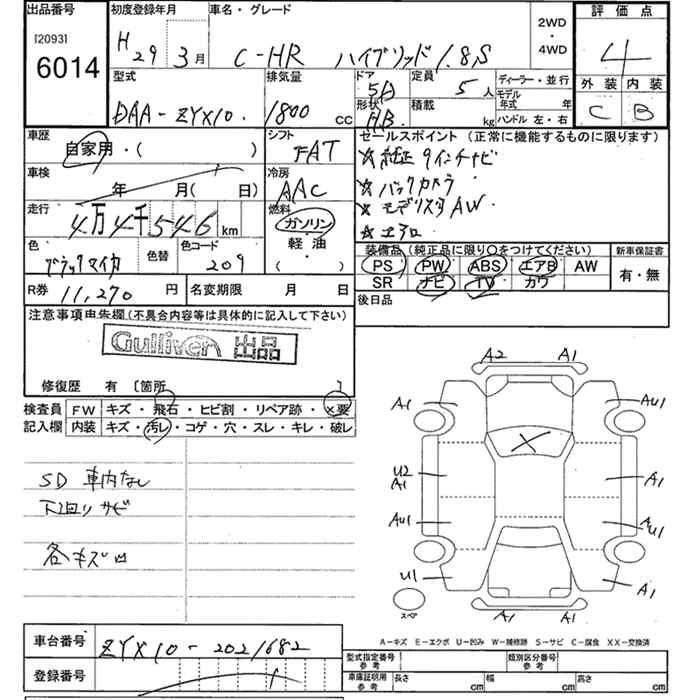 出品番号 初度登録年月 車名・グレード 評価点
[2093]
6014
H29年3月 C-HR ハイブリッド 1.8S 2WD・4WD 4
型式 排気量 ドア 定員 ディーラー・並行 外装 内装
DAA-ZYX10. 1800 cc 5D 5人 モデル年式 年 C B
形状 積載 ハンドル 左・右
HB kg
車歴 シフト セールスポイント (正常に機能するものに限ります)
自家用・( ) FAT ☆純正9インチナビ
車検 冷房
年 月( 日) AAC ☆バックカメラ
走行 燃料 ☆モデリスタAW
4万4千546km ガソリン ☆エアロ
色 色替 色コード 軽油・ 装備品(純正品に限り○をつけてください) 新車保証書
ブラックマイカ 209 ( ) PS PW ABS エアB AW 有・無
R券 11,270円 名変期限 月 日 SR ナビ TV カワ
後日品
注意事項申告欄(不具合内容等は具体的に記入して下さい)
Gulliver 出品
修復歴 有 [箇所 ]
検査員 FW キズ・飛石・ヒビ割・リペア跡・×要
記入欄 内装 キズ・汚レ・コゲ・穴・スレ・キレ・破レ
SD 車内なし
下回りサビ
各キズ凹
A2 A1
A1 AU1
X
U2 A1 A1
AU1 AU1
U1 A1
スペア A1 A1
A-キズ E-エクボ U-凹み W-補修跡 S-サビ C-腐食 XX-交換済
車台番号 ZYX10-2021682
登録番号
型式指定番号 参考 類別区分番号 参考
車庫証明用 参考 長さ cm 幅 cm 高さ cm